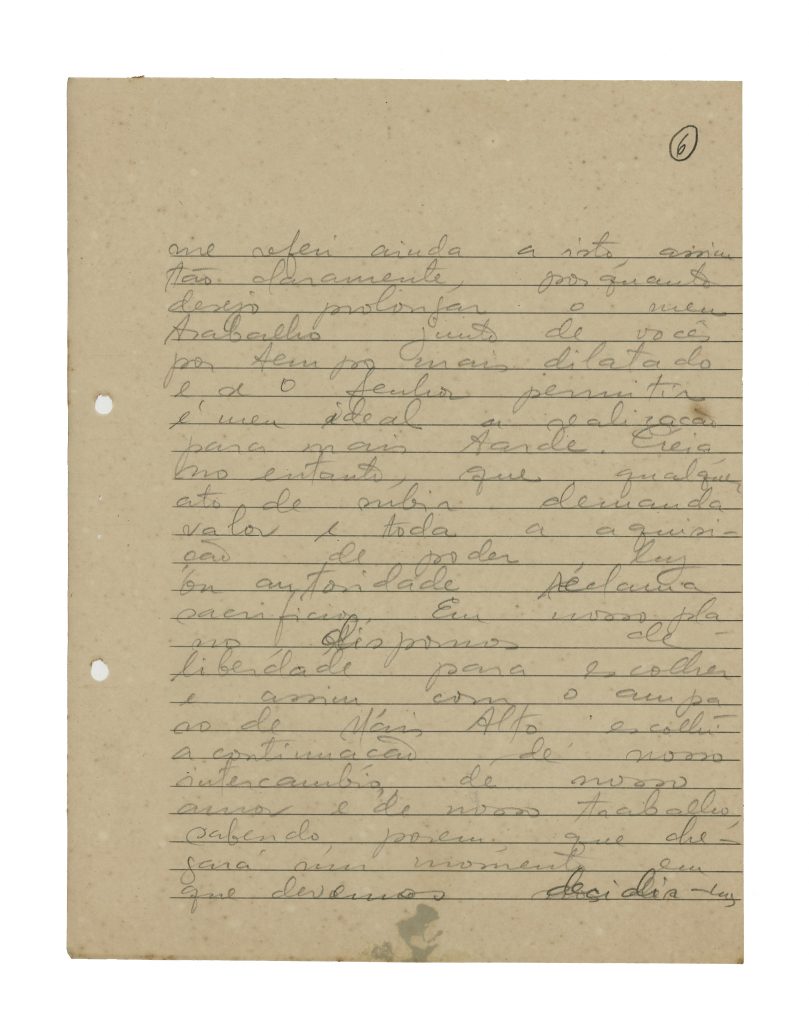 6
me referi ainda a isto, assim
tão claramente, porquanto
desejo prolongar o meu
trabalho junto de vocês
por tempo mais dilatado
e se o Senhor permitir
é meu ideal a realização
para mais tarde. Creia,
no entanto, que qualquer
ato de subir demanda
valor e toda a aquisi-
ção de poder, luz
ou autoridade reclama
sacrificio. Em nosso pla-
no dispomos de
liberdade para escolher
e assim com o ampa
ro de Mais Alto escolhi
a continuação de nosso
intercambio, de nosso
amor e de nosso trabalho,
sabendo porem que che-
gará um momento em
que devemos decidir-